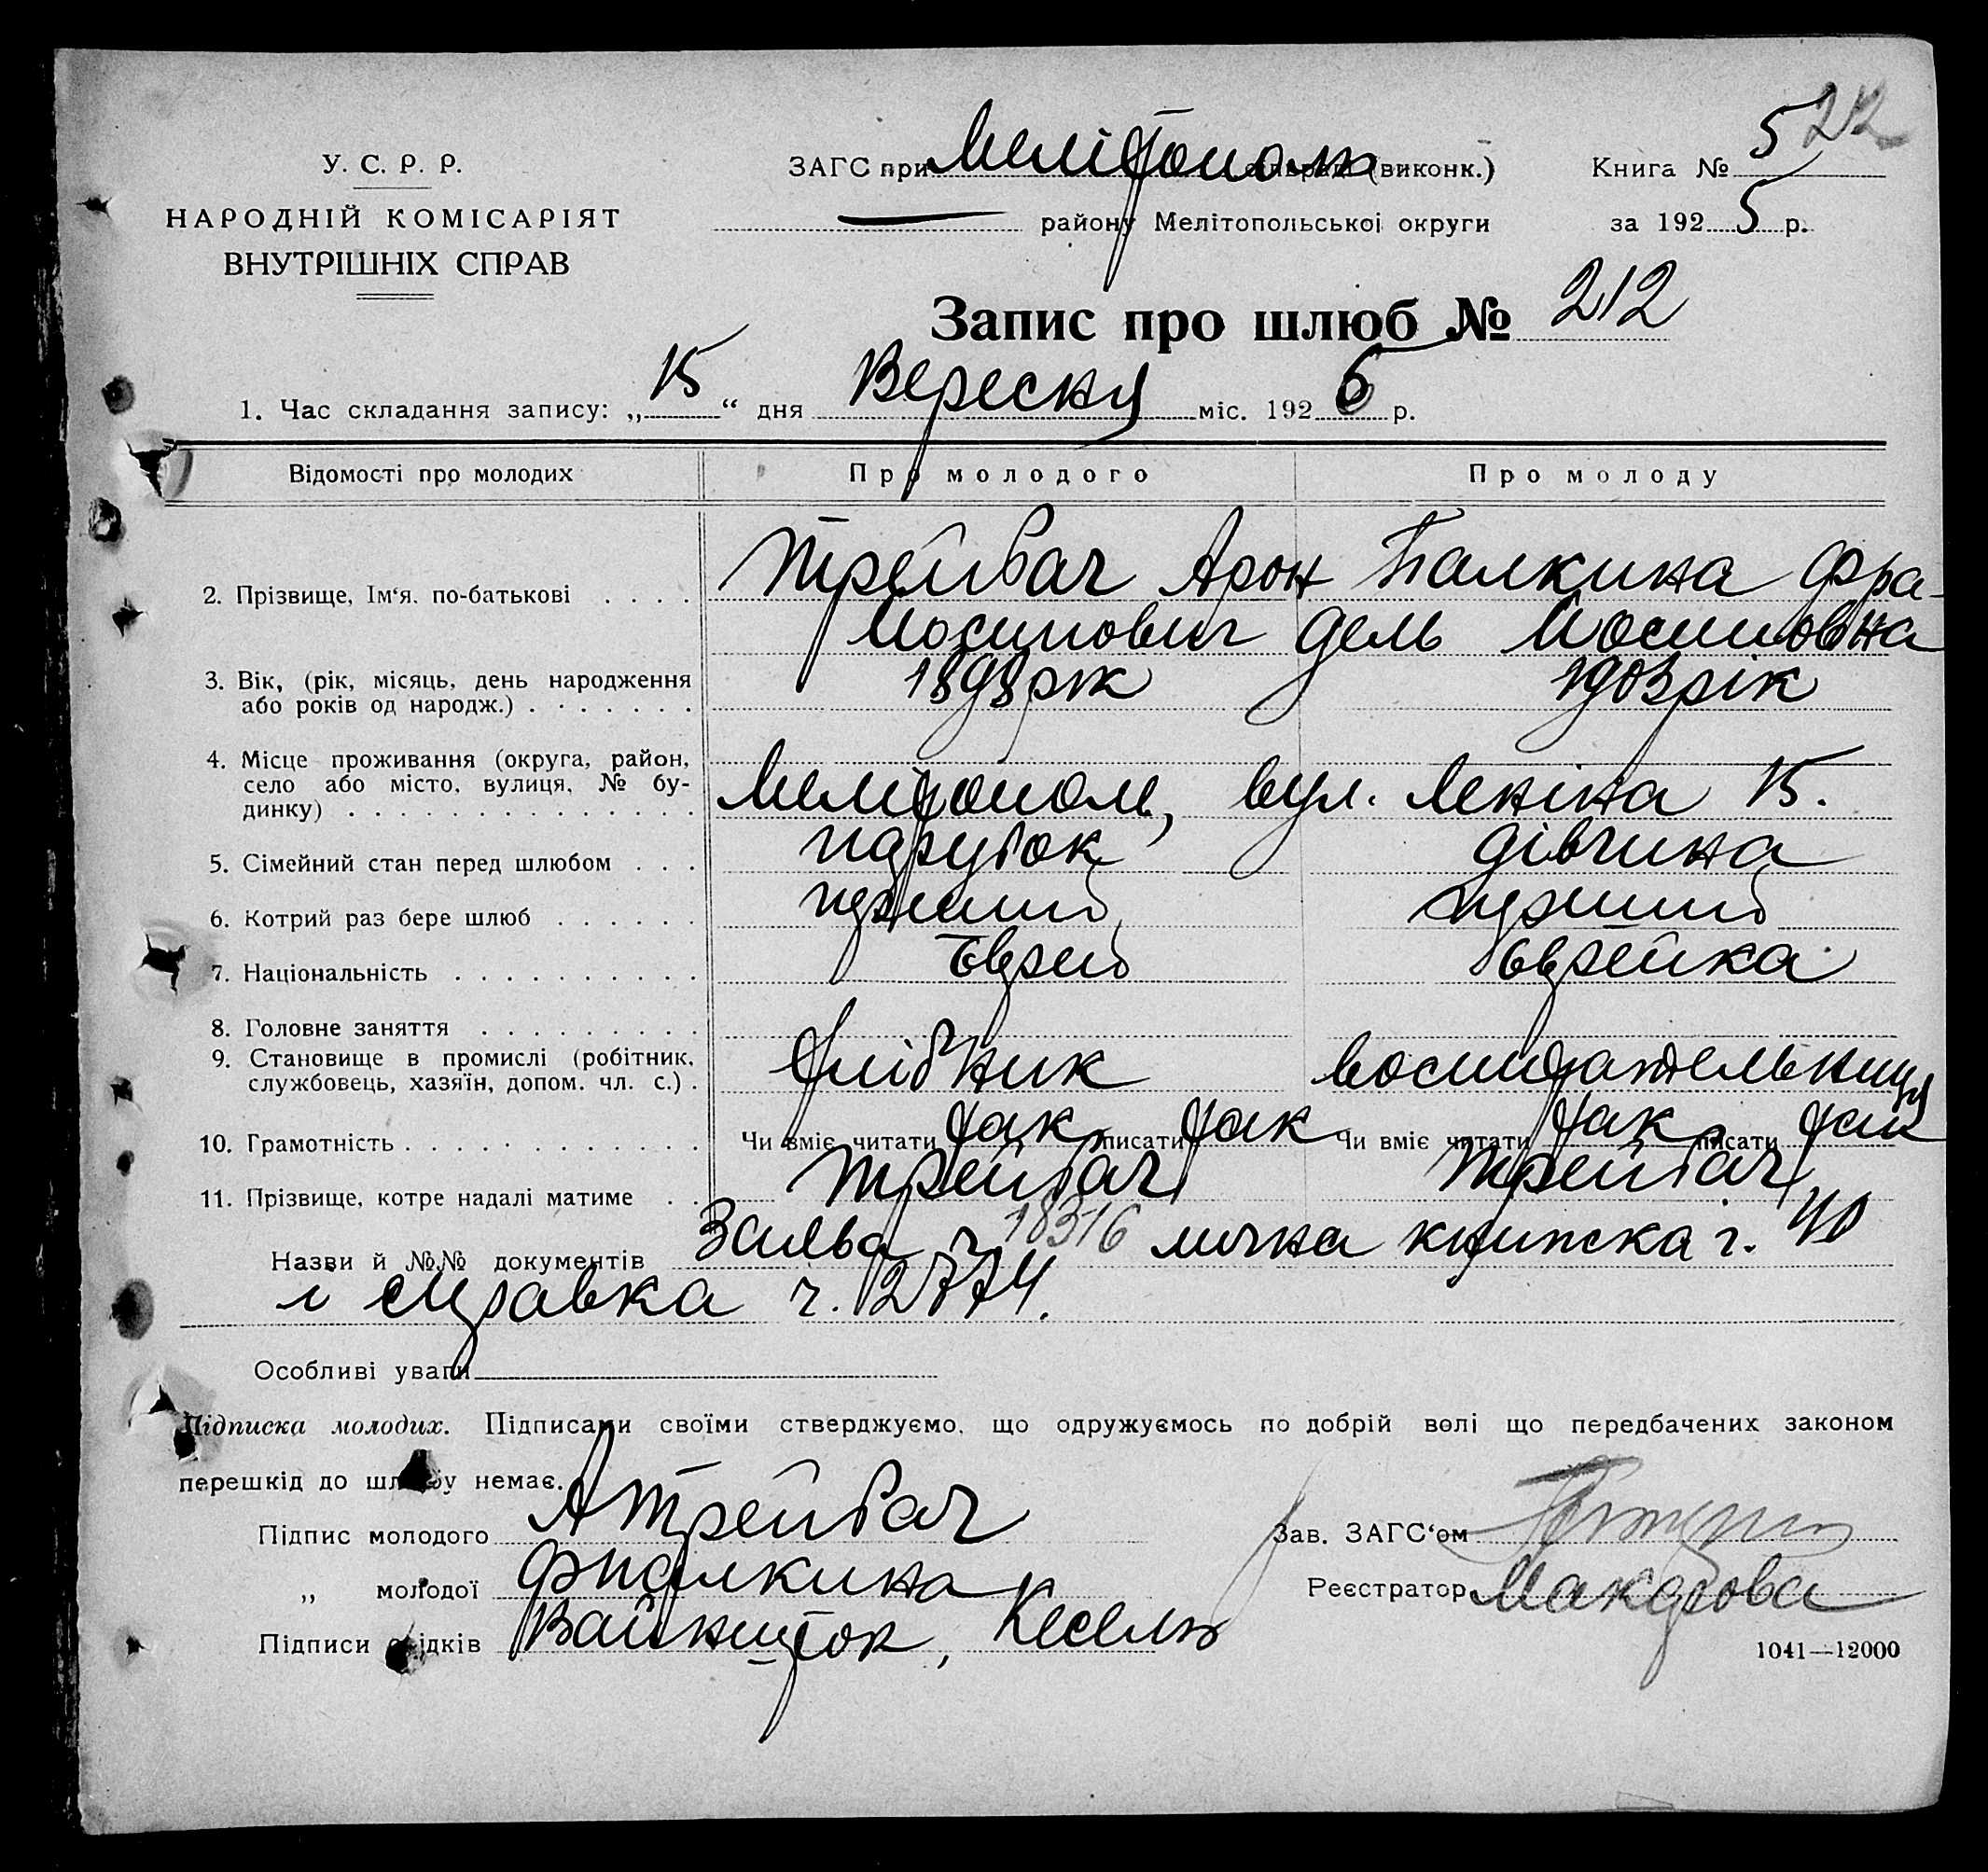 522
У. С. Р. Р.
НАРОДНІЙ КОМІСАРІЯТ
ВНУТРІШНІХ СПРАВ
ЗАГС при Мелітополь (виконк.)
Книга № 5
району Мелітопольської округи
за 1925 р.
Запис про шлюб № 212
1. Час складання запису: „15“ дня Вересня міс. 1925 р.
Відомості про молодих Про молодого Про молоду
2. Прізвище, Ім‘я, по-батькові Трейвач Арон Палкина Фра-
Йосипович дель Йосиповна
3. Вік, (рік, місяць, день народження 1898 рік 1903 рік
або років од народж.)
4. Місце проживання (округа, район,
село або місто, вулиця, № бу- Мелітополь, вул. Леніна 15.
динку)
5. Сімейний стан перед шлюбом парубок дівчина
6. Котрий раз бере шлюб перший перший
7. Національність Єврей Єврейка
8. Головне заняття
9. Становище в промислі (робітник, воспитательниця
службовець, хазяїн, допом. чл. с.)
10. Грамотність Чи вміє читати так писати так Чи вміє читати так писати так
11. Прізвище, котре надалі матиме Трейвач Трейвач
Назви й №№ документів Заява ч. 18316 лична книжка ч. 40
і справка ч. 2774.
Особливі уваги
Підписка молодих. Підписами своїми стверджуємо, що одружуємось по добрій волі що передбачених законом
перешкід до шлюбу немає.
Підпис молодого АТрейвач
Зав. ЗАГС‘ом
„ молодої ФПалкина
Реєстратор Макарова
Підписи свідків Вайншток, Кесель
1041—12000